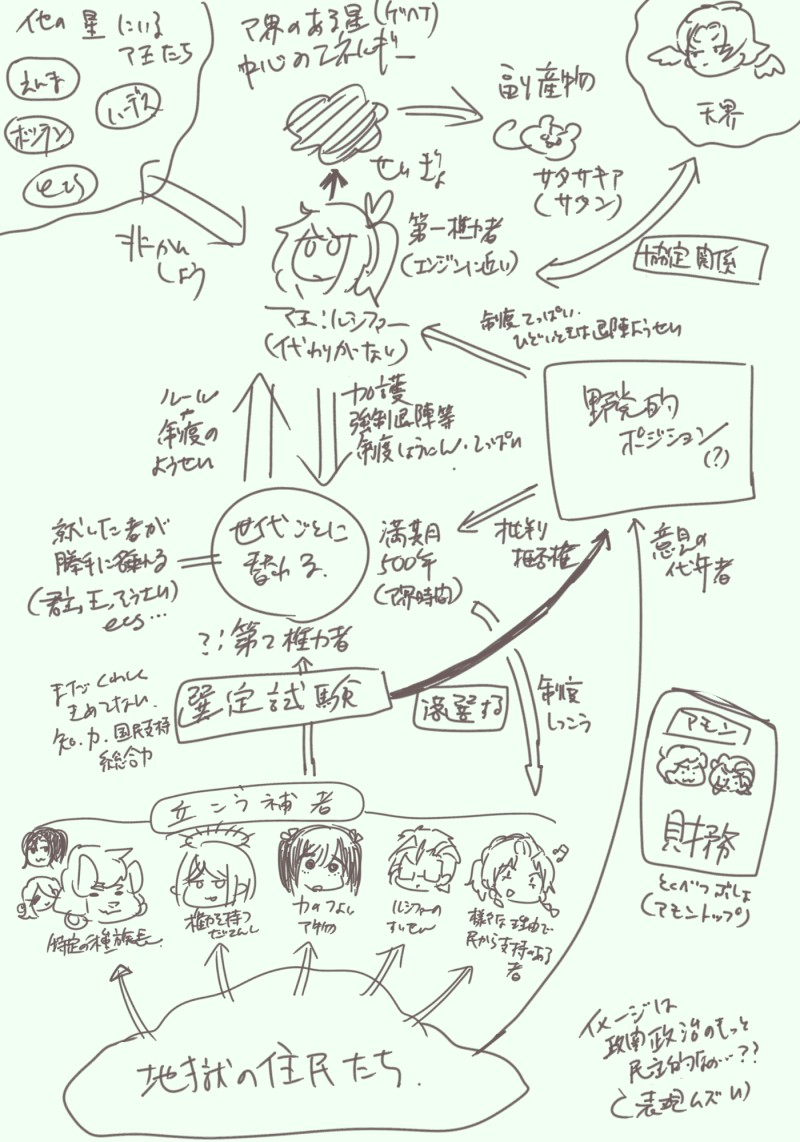 他の星にいる
マ王たち
えんま
ハーデス
ecs
マ界のある星(ゲヘナ)
中心のエネルギー
せいぎょ
副産物
サタサキア
(サタン)
天界
協定関係
非かん
しょう
第一権力者
(エンジンに近い)
マ王:ルシファー
(代わりがいない)
制度てっぱい.
ひどいときは退陣ようせい
野党的
ポジション
(?)
ルール
制度の
ようせい
加護
強制退陣等
制度しょうにん・てっぱい
世代ごとに
替わる.
就した者が
勝手に
ecs...
満期
500年
(マ界時間)
批判
拒否権
意見の
代弁者
?:第2権力者
選定試験
まだくわしく
きめてない.
知.力.国民支持
総合力
落選する
制度
しっこう
立こうほ補者
特定の種族長.
権力を持つ
だてんし
力のつよい
マ物
ルシファーの
すいせん
様々な理由で
民から支持のある
者
アモン
財務
とくべつぶしょ
(アモントップ)
地獄の住民たち.
イメージは
政治のもっと
民主的なの...??
(表現ムズい)